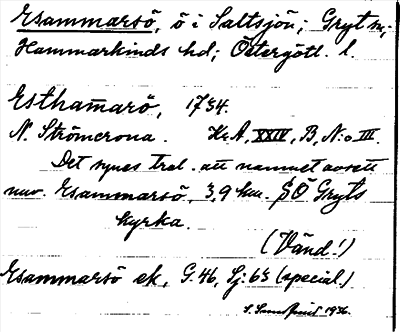 Esammarsö, ö i Saltsjön; Gryt sn;
Hammarkinds hd; Östergötl. l.
Esthamarö, 1734.
N. Strömcrona. K.A, XXIV, B, N:o III.
Det synes tral. att namnet avsett
nuv. Esammarsö, 3,9 km. SÖ Gryts
kyrka.
(Vänd!)
Esammarsö ek, G. 46, Lj: 65 (special.)
1936.